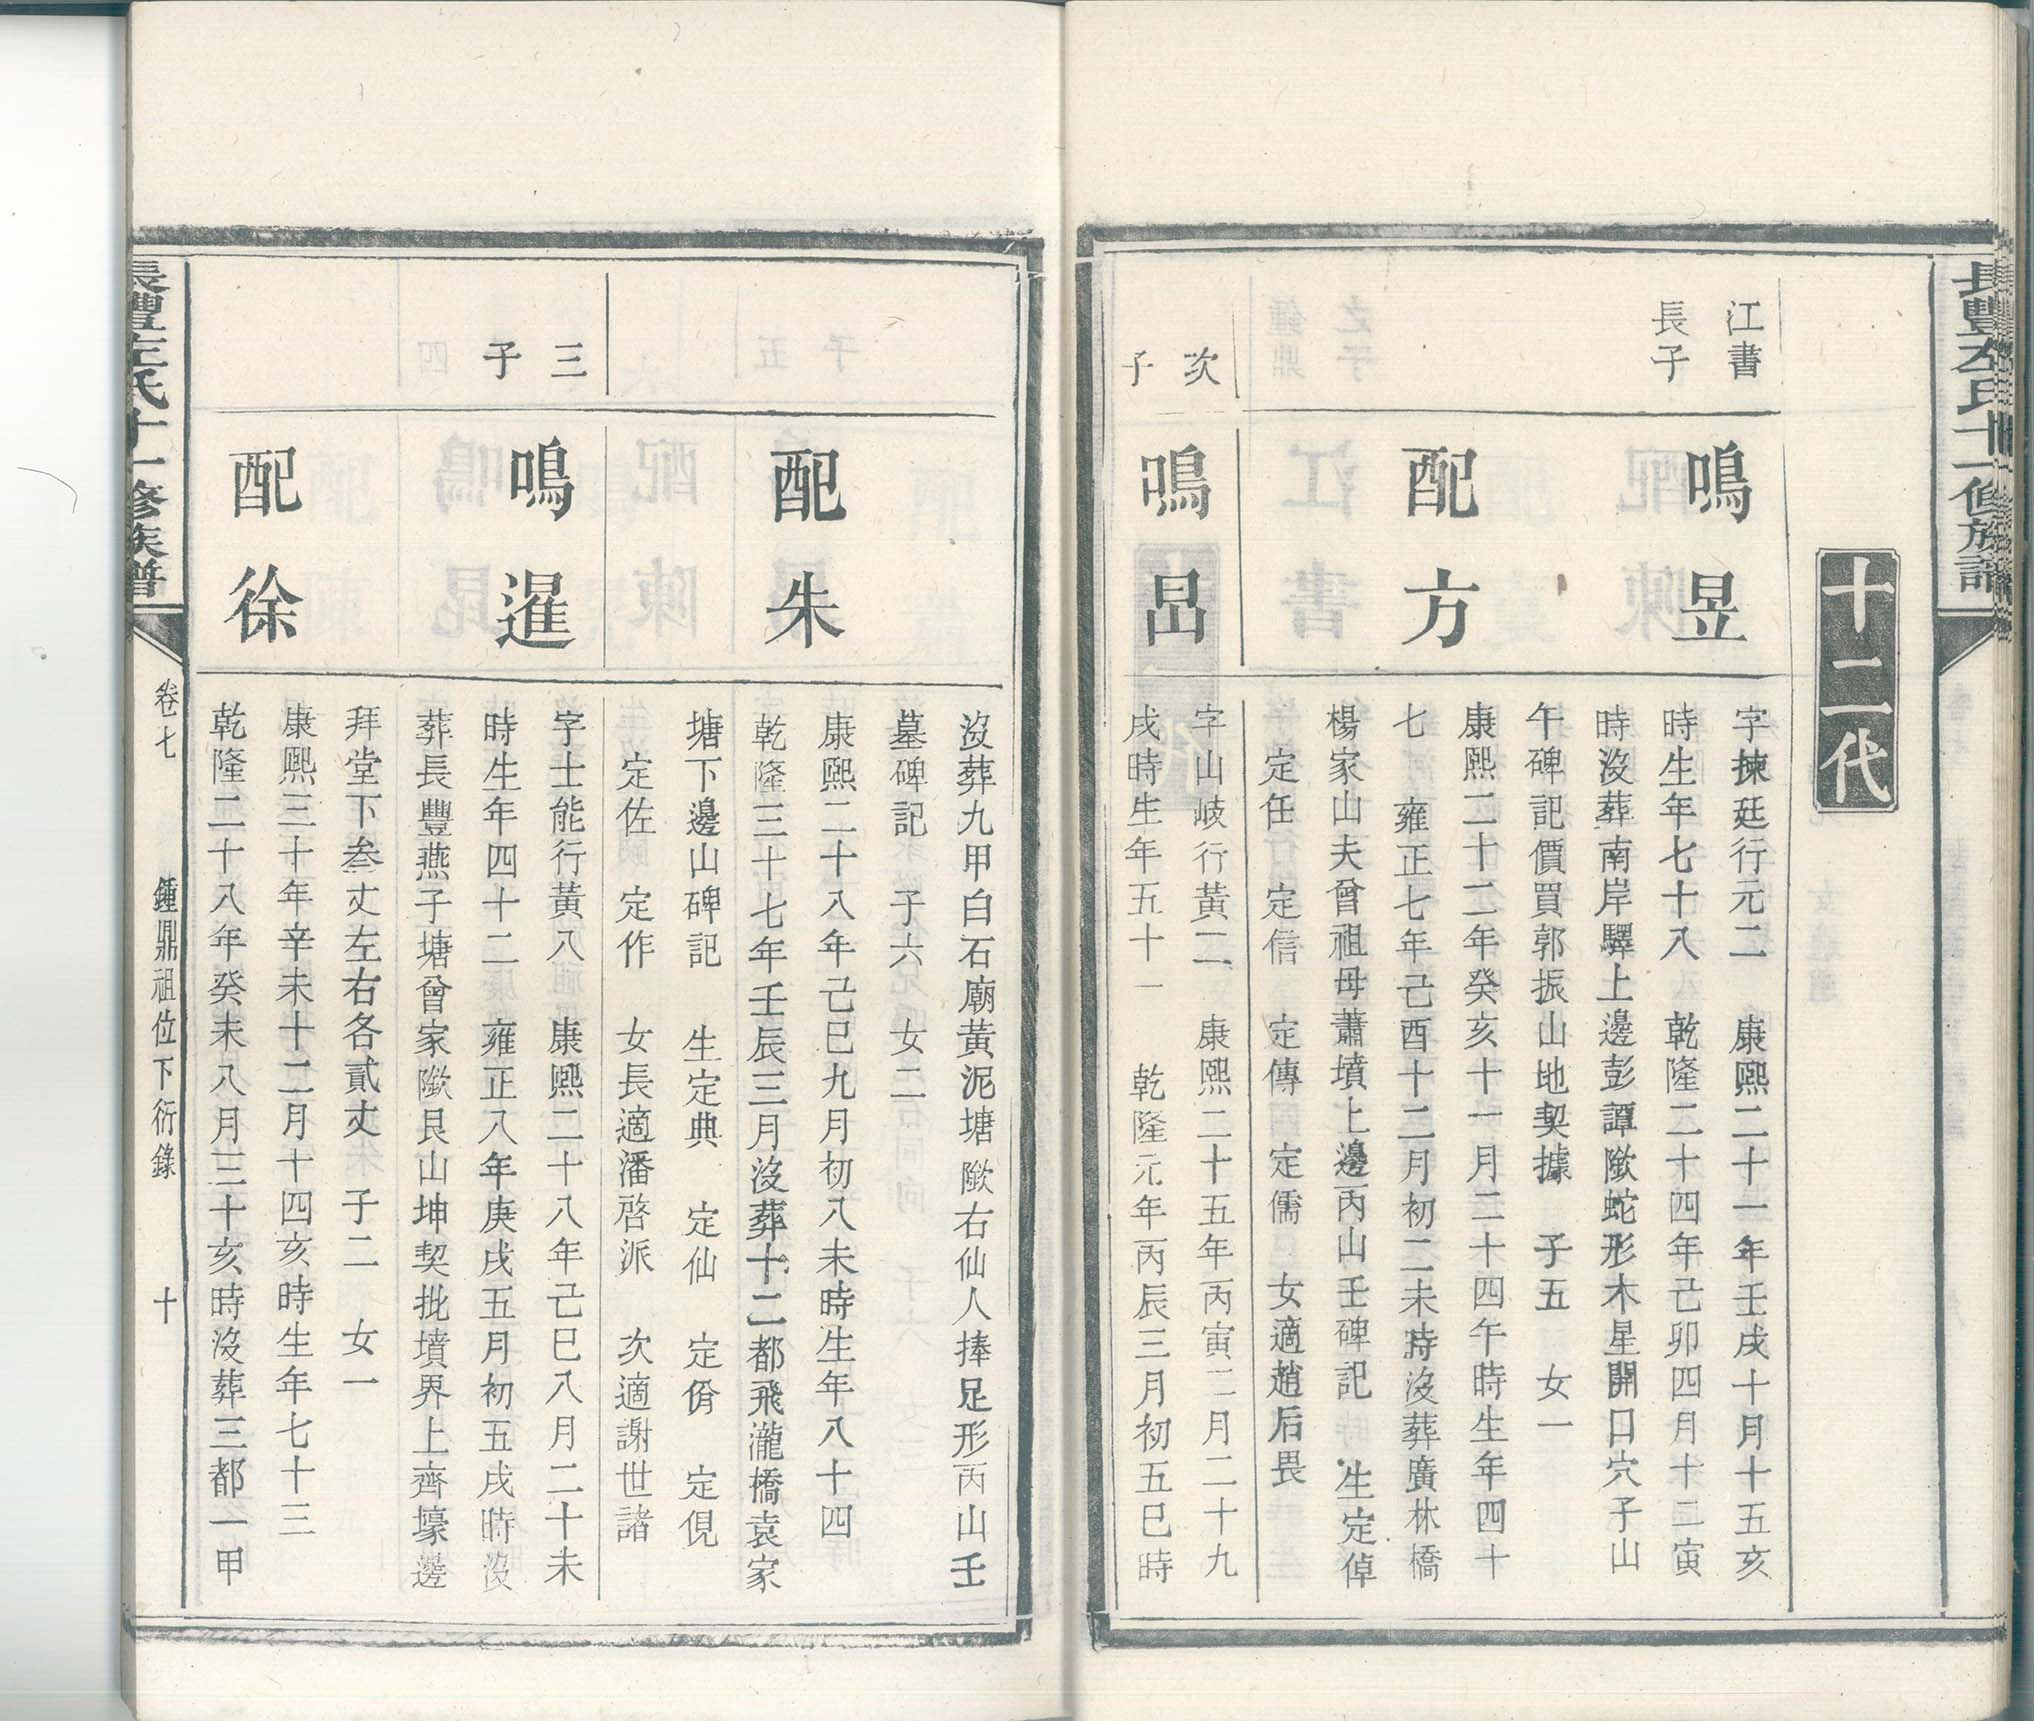 長豐左氏十一修族譜
十二代
江書
長子
鳴昱
字揀廷行元二　康熙二十一年壬戌十月十五亥
時生年七十八　乾隆二十四年己卯四月十二寅
時沒葬南岸驛上邊彭譚歘蛇形木星開口穴子山
午碑記價買郭振山地契據　子五　女一
配方
康熙二十二年癸亥十一月二十四午時生年四十
七　雍正七年己酉十二月初二未時沒葬廣林橋
楊家山夫曾祖母蕭墳上邊丙山壬碑記　生定倬
定任　定信　定傳　定儒　女適趙后畏
次
子
鳴旵
字山岐行黃二　康熙二十五年丙寅二月二十九
戌時生年五十一　乾隆元年丙辰三月初五巳時
沒葬九甲白石廟黃泥塘歘右仙人捧足形丙山壬
墓碑記　子六　女二
配朱
康熙二十八年己巳九月初八未時生年八十四
乾隆三十七年壬辰三月沒葬十二都飛瀧橋袁家
塘下邊山碑記　生定典　定仙　定佾　定俔
定佐　定作　女長適潘啓派　次適謝世諸
三
子
鳴暹
字士能行黃八　康熙二十八年己巳八月二十未
時生年四十二　雍正八年庚戌五月初五戌時沒
葬長豐燕子塘曾家歘艮山坤契批墳界上齊壕邊
拜堂下叁丈左右各貳丈　子二　女一
配徐
康熙三十年辛未十二月十四亥時生年七十三
乾隆二十八年癸未八月三十亥時沒葬三都一甲
長豐左氏十一修族譜
卷七
鍾鼎祖位下衍錄
十